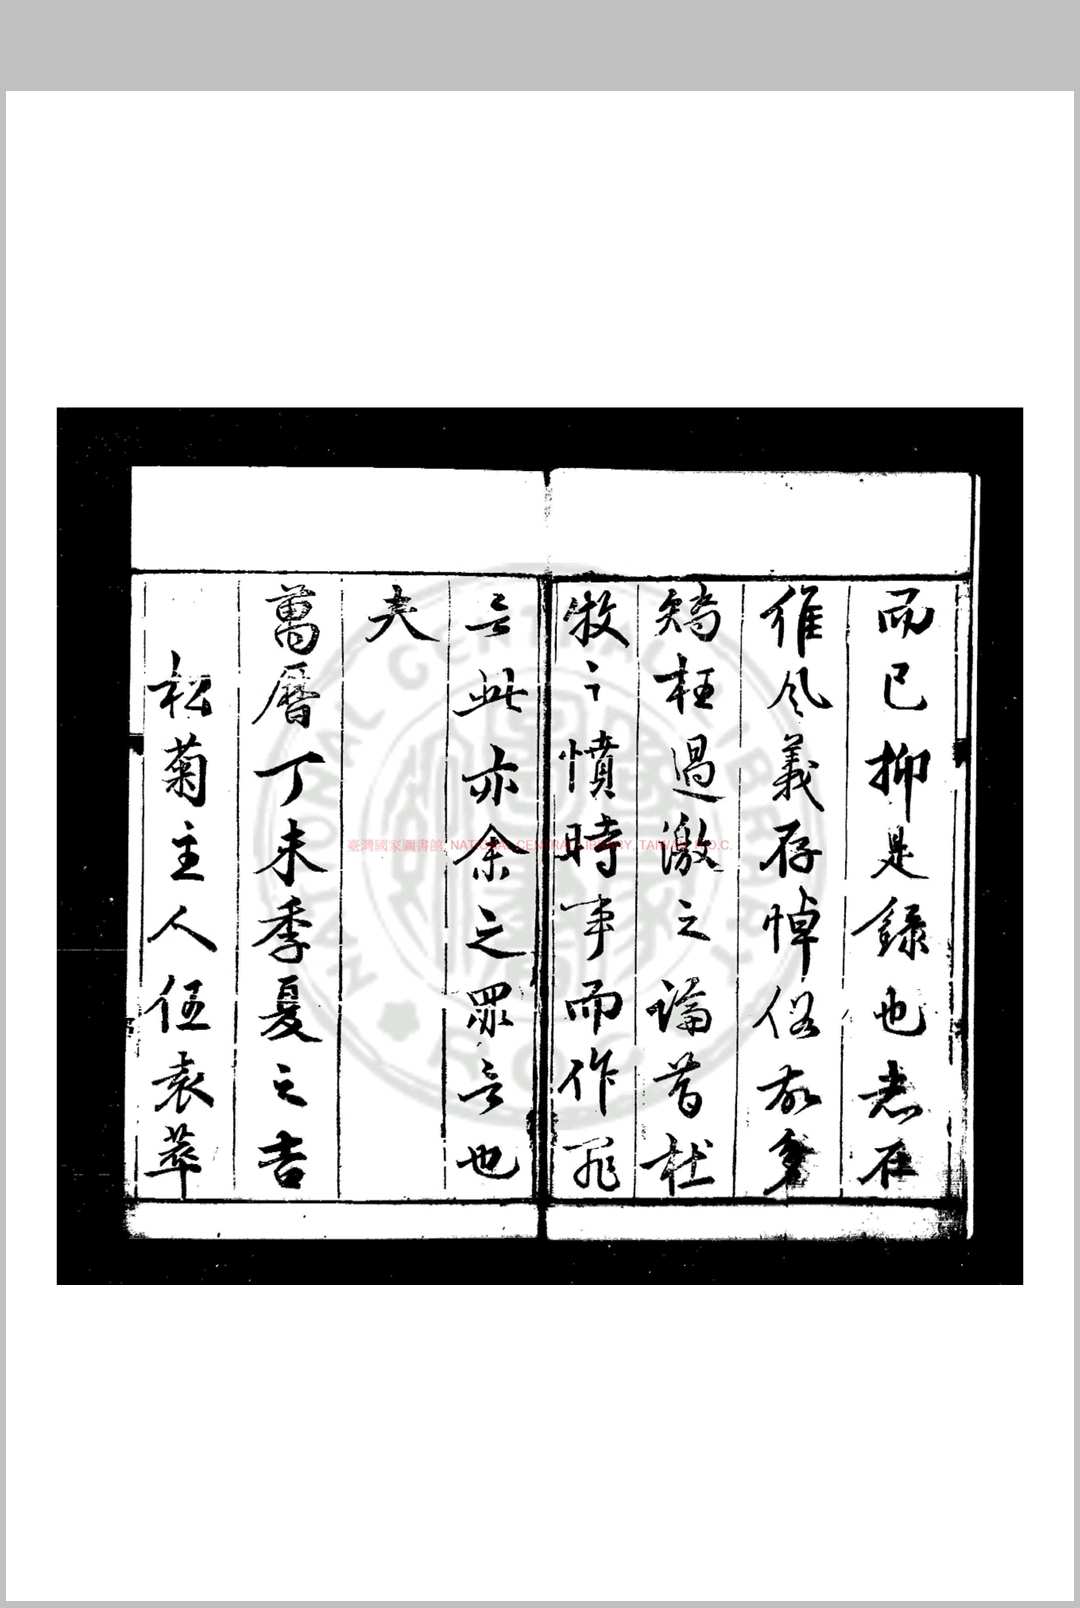 而已抑是錄也志在
維風義存悼俗故多
矯枉過激之論昔杜
牧之憤時事而作罪
言此亦余之罪言也
夫
萬曆丁未季夏之吉
松菊主人伍袁萃
臺灣國家圖書館 NATIONAL CENTRAL LIBRARY, TAIWAN, R.O.C.